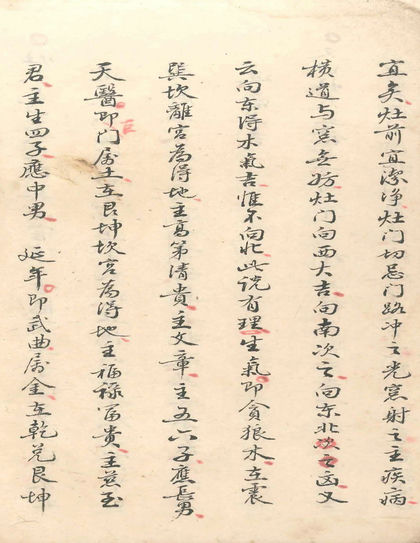 宜矣灶前宜潔净灶门切忌门路冲之光窓射之主疾病
横道与窓無妨灶门向西大吉向南次之向东北次之凶又
云向东得水氣吉惟不向北此说有理生氣即貪狼木在震
巽坎離宫為得地主高第清貴主文章主五六子應長男
天醫即巨门属土在艮坤坎宫為得地主福禄富贵主慈
君主生四子應中男　延年即武曲属金在乾兑艮坤